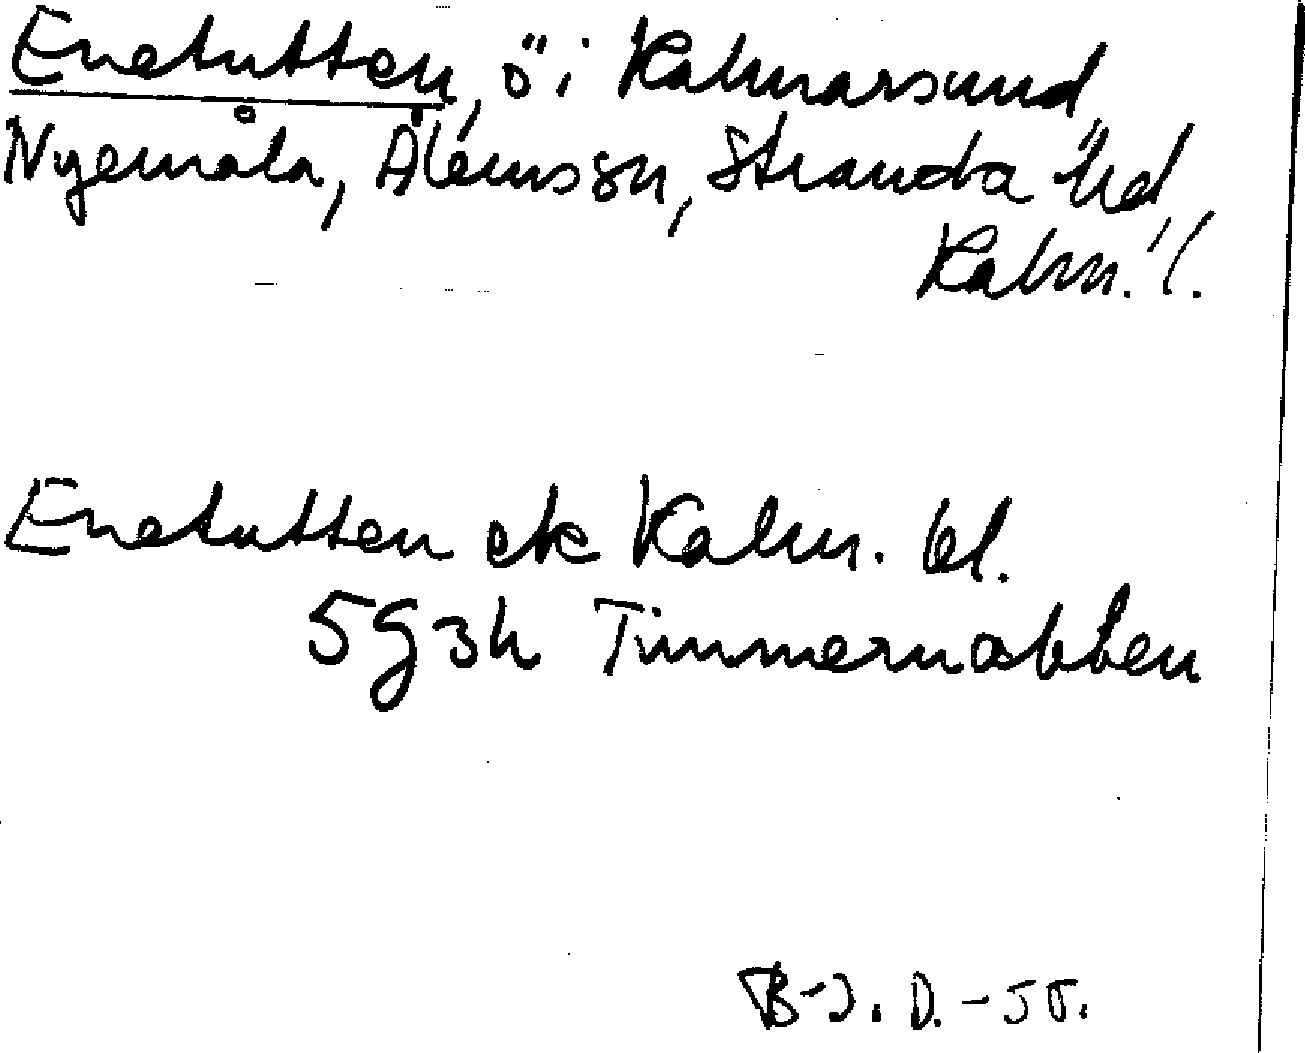 Enetutten, ö i Kalmarsund,
Nyemåla, Ålems sn, Stranda hd,
Kalm. l.
Enetutten ek Kalm. bl.
5G3h Timmernabben
B-J. D. -55.